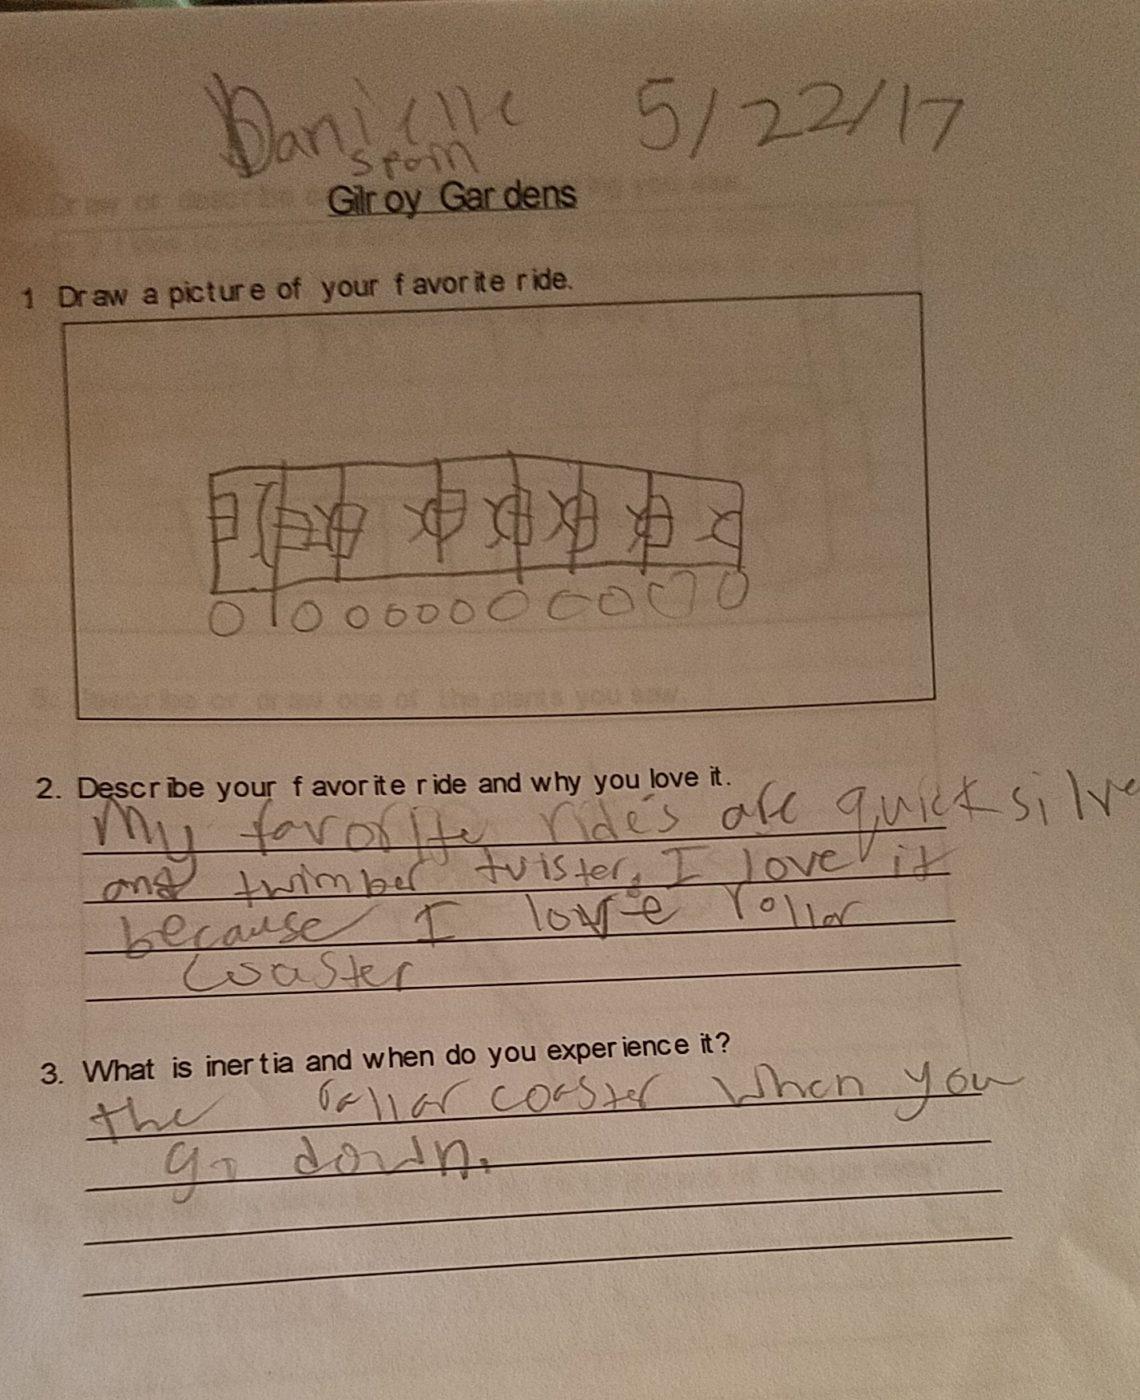 Danielle 5/22/17
Gilroy Gardens
1 Draw a picture of your favorite ride.
2. Describe your favorite ride and why you love it.
My favorite rides are quicksilve
and twimber twister. I love it
because I love rollar
coaster
3. What is inertia and when do you experience it?
the rallar coaster when you
go down.
5. Describe or draw one of the plants you saw.